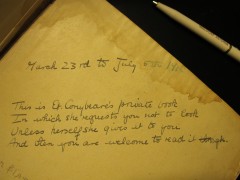 March 23rd to July
This is E. Conybeare's private book
In which she requests you not to look
Unless herself she give it to you
And then you are welcome to read it